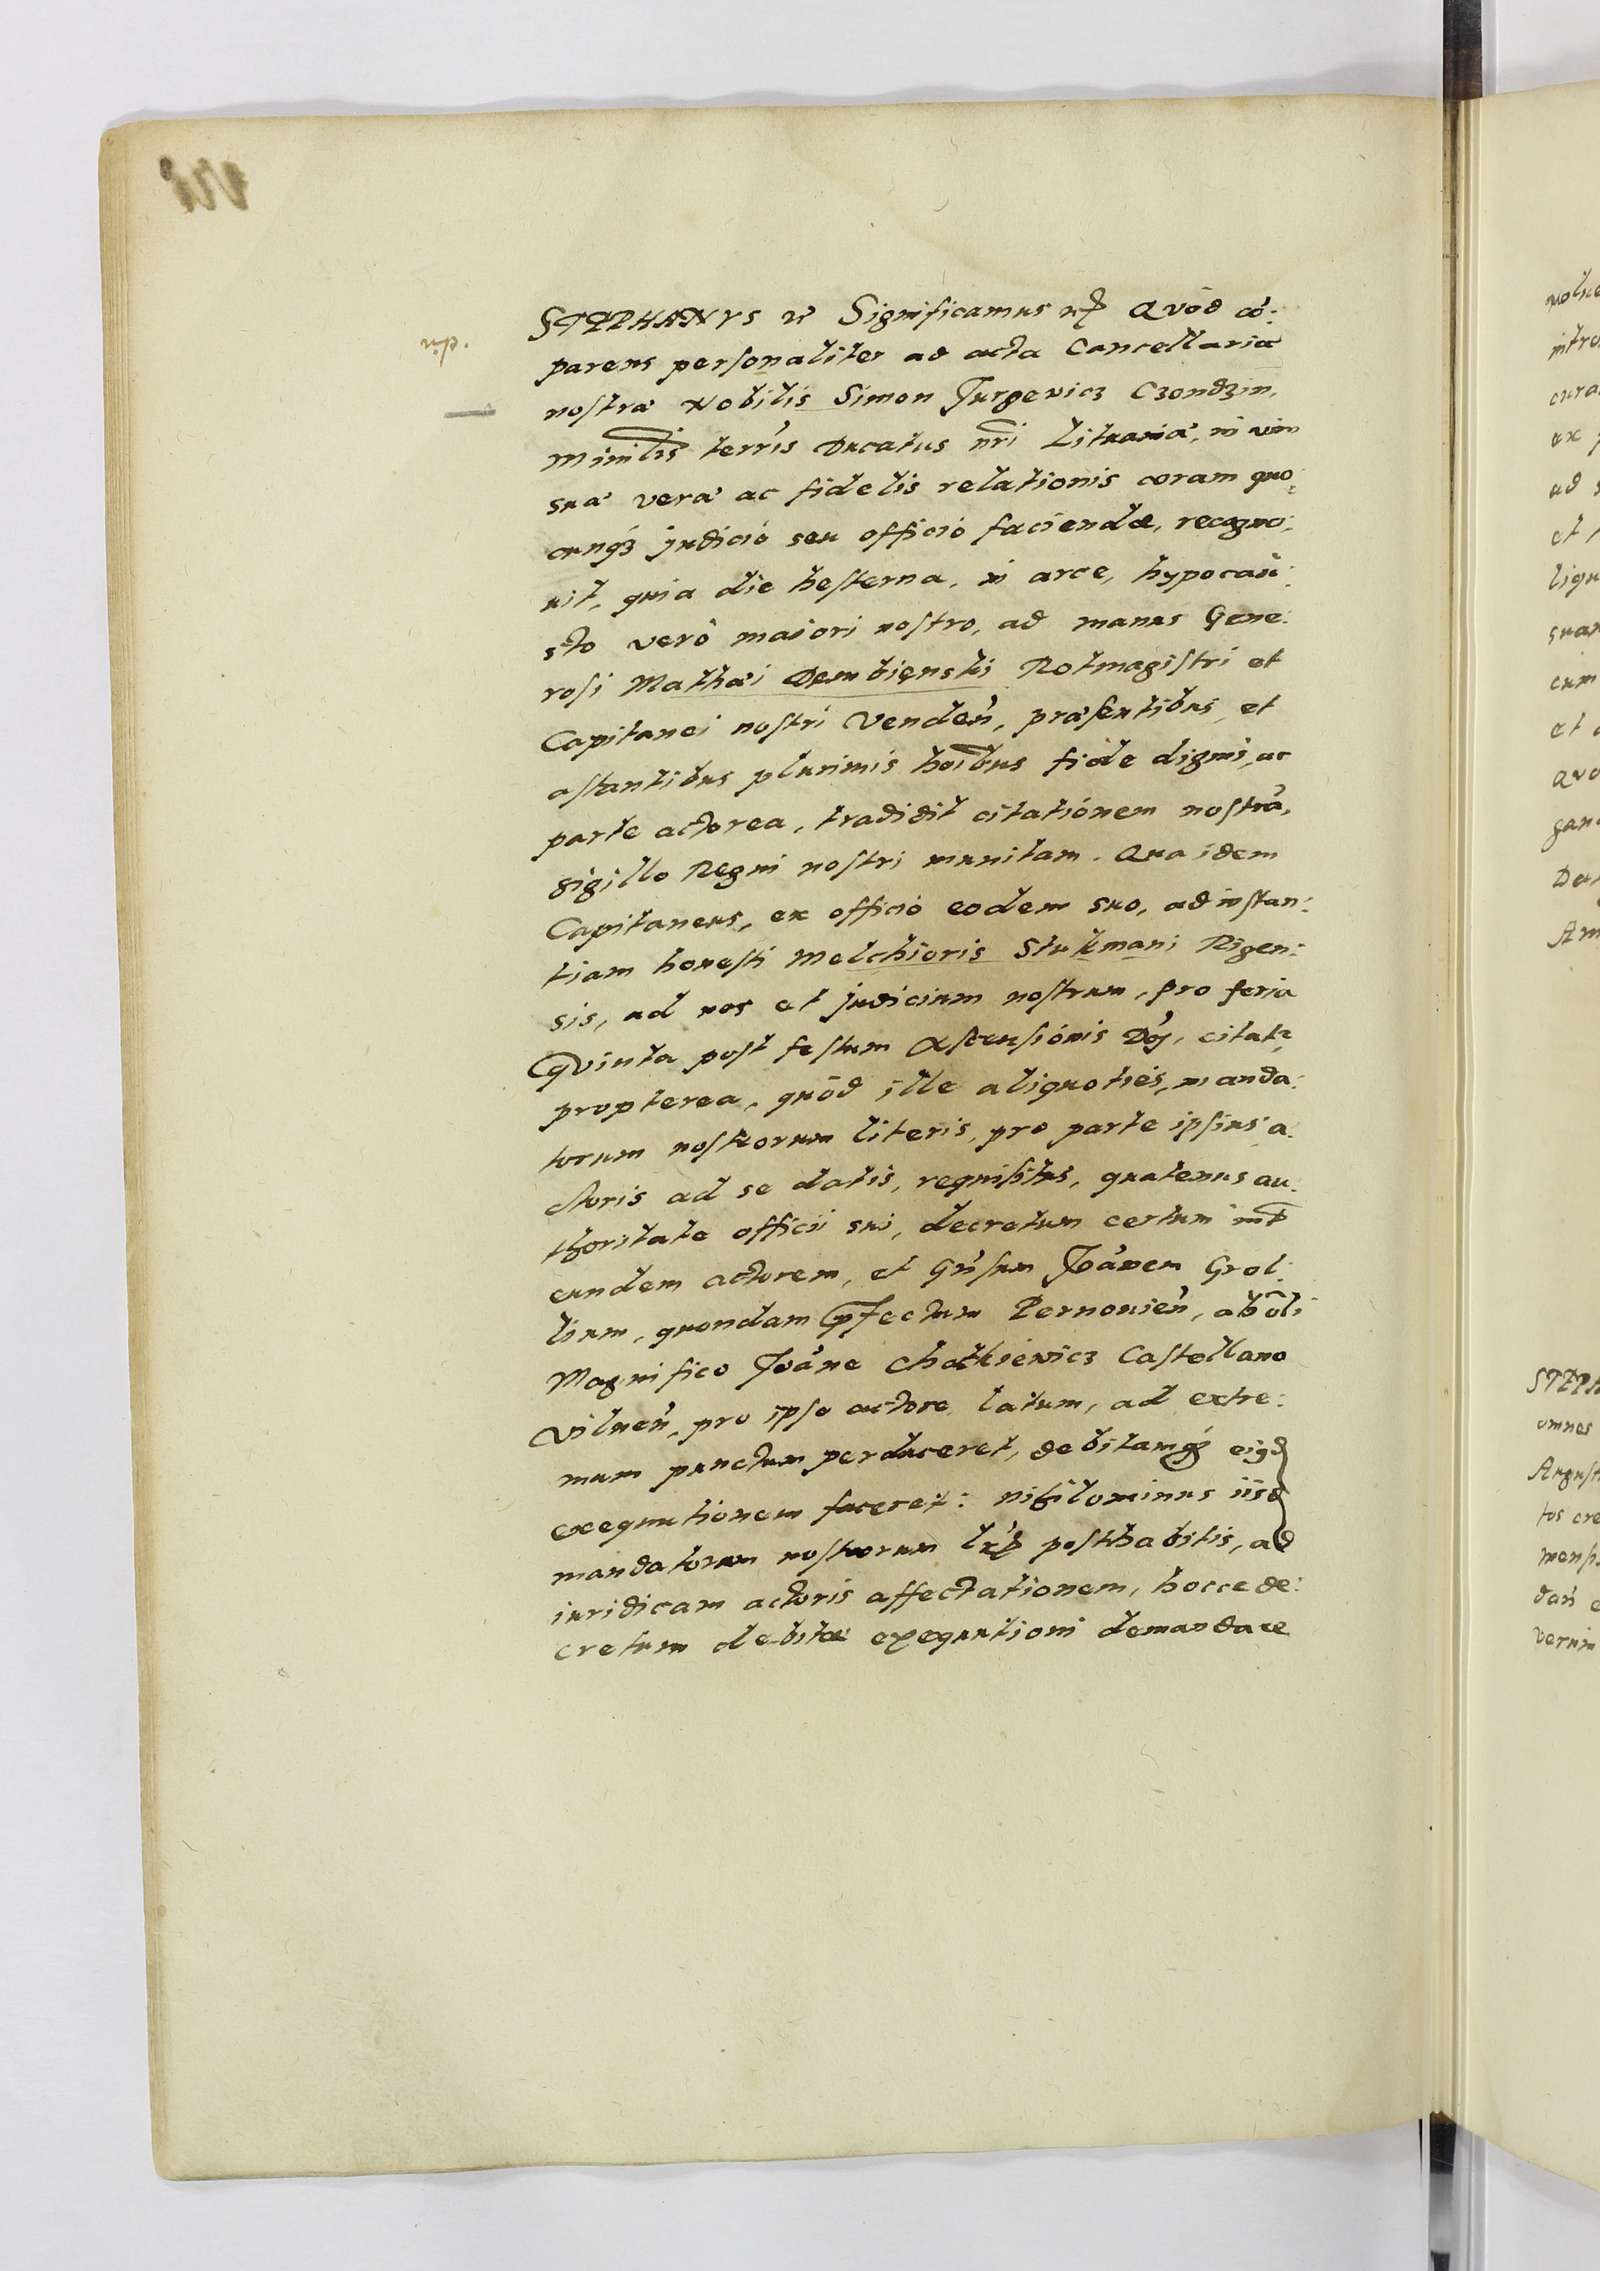 STEPHANVS etc Significamus etc Quòd cō:
parens personaliter ad acta Cancellariæ
nostræ Nobilis Simon Jurgewicz Czondzin,
Minilis terr's Ducatus nr̄i Lituaniæ, in vim
suæ veræ ac fidelis relationis coram quo:
cunq3 judicio seu officio faciendæ, recogno:
uit, quia die hesterna, in arce, hypocau:
sto verò maiori nostro, ad manus Gene:
rosi Mathæi Dembienski Rotmagistri et
Capitanei nostri Venden', præsentibus et
astantibus plurimis hoībus fide dignis, ac
parte actorea, tradidit citationem nostrā,
sigillo Regni nostri munitam. Qua idem
Capitaneus, ex officio eodem suo, ad instan:
tiam honesti Melchioris Stukmani Rigen:
sis, ad nos et judicium nostrum, pro feria
Quinta post festum Ascensionis Dnj, citatr
propterea, quòd ille aliquoties, manda:
torum nostrorum literis, pro parte ipsius a:
ctoris ad se datis, requisitus, quatenus au:
thoritate officii sui, decretum certum int
eundem actorem, et Gn'sum Joānem Grol:
lium, quondam Præfectum Pernouien', ab oli
Magnifico Joāne Chotkiewicz Castellano
Vilnen', pro ipso actore latum, ad extre:
mum punctum perduceret, debitamq3 eigd
exequutionem faceret: nihilominus iisd
mandatorum nostrorum lr̄is posthabitis, ad
iuridicam actoris affectationem, hocce de:
cretum debitæ exequutioni demandare